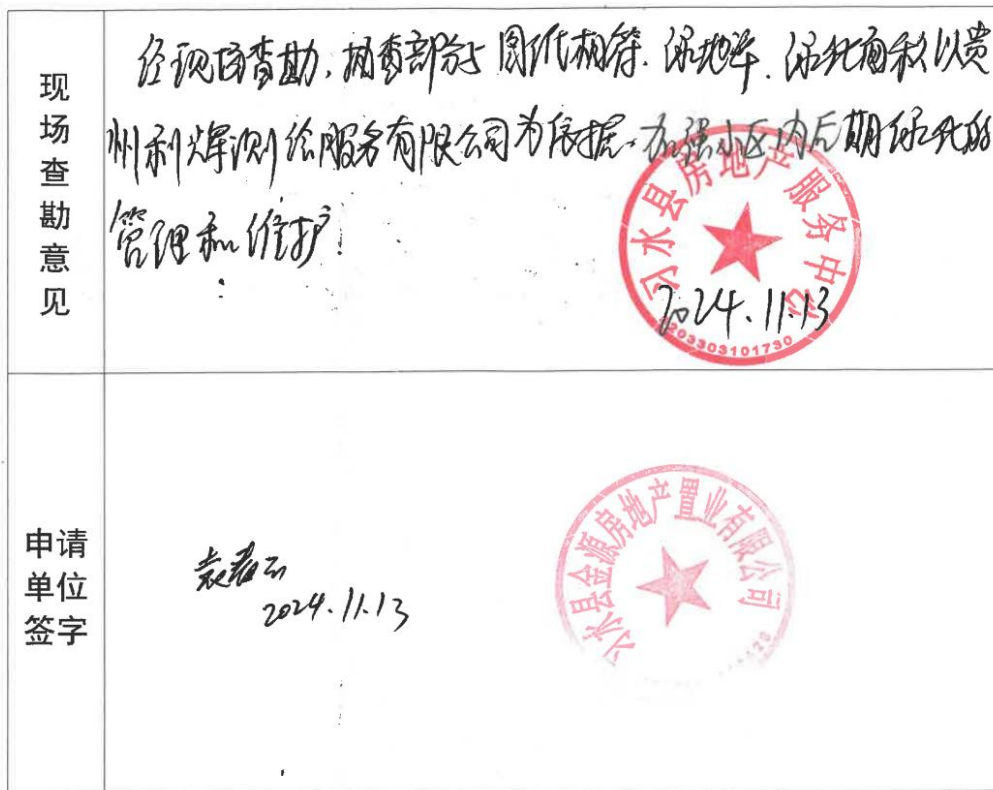 现场查勘意见
经现场查勘,抽查部分与图纸相符.绿地率.绿化面积以贵
州利辉测绘服务有限公司为依据.加强小区内后期绿化的
管理和维护!
习水县房地产服务中心
2024.11.13
5203303101730
申请单位签字
袁
2024.11.13
习水县金源房地产置业有限公司